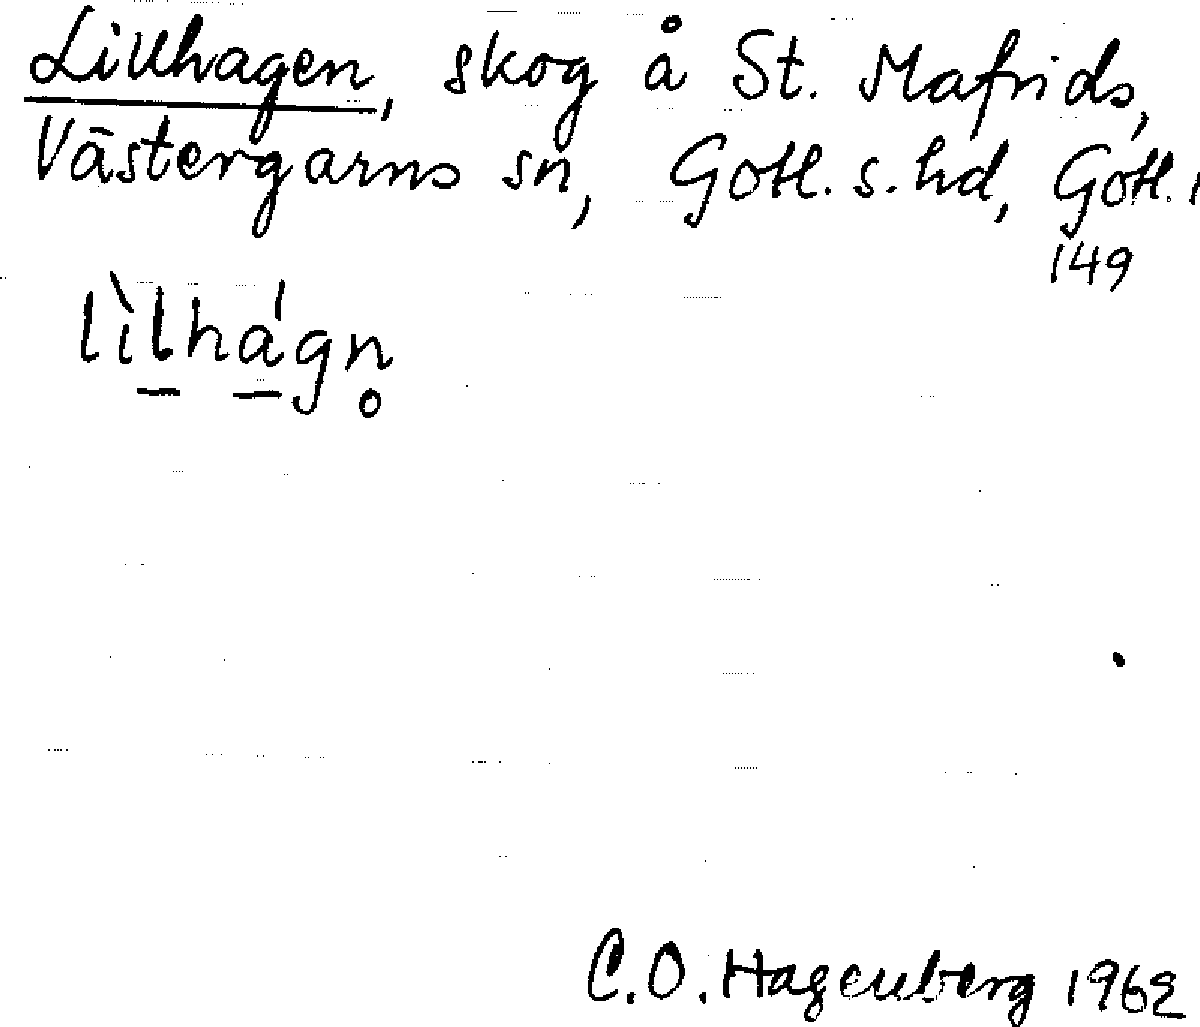 Lillhagen, skog å St. Mafrids,
Västergarns sn, Gotl. s. hd, Gotl. l
149
lìlhágn̥
C.O. Hagenberg 1962